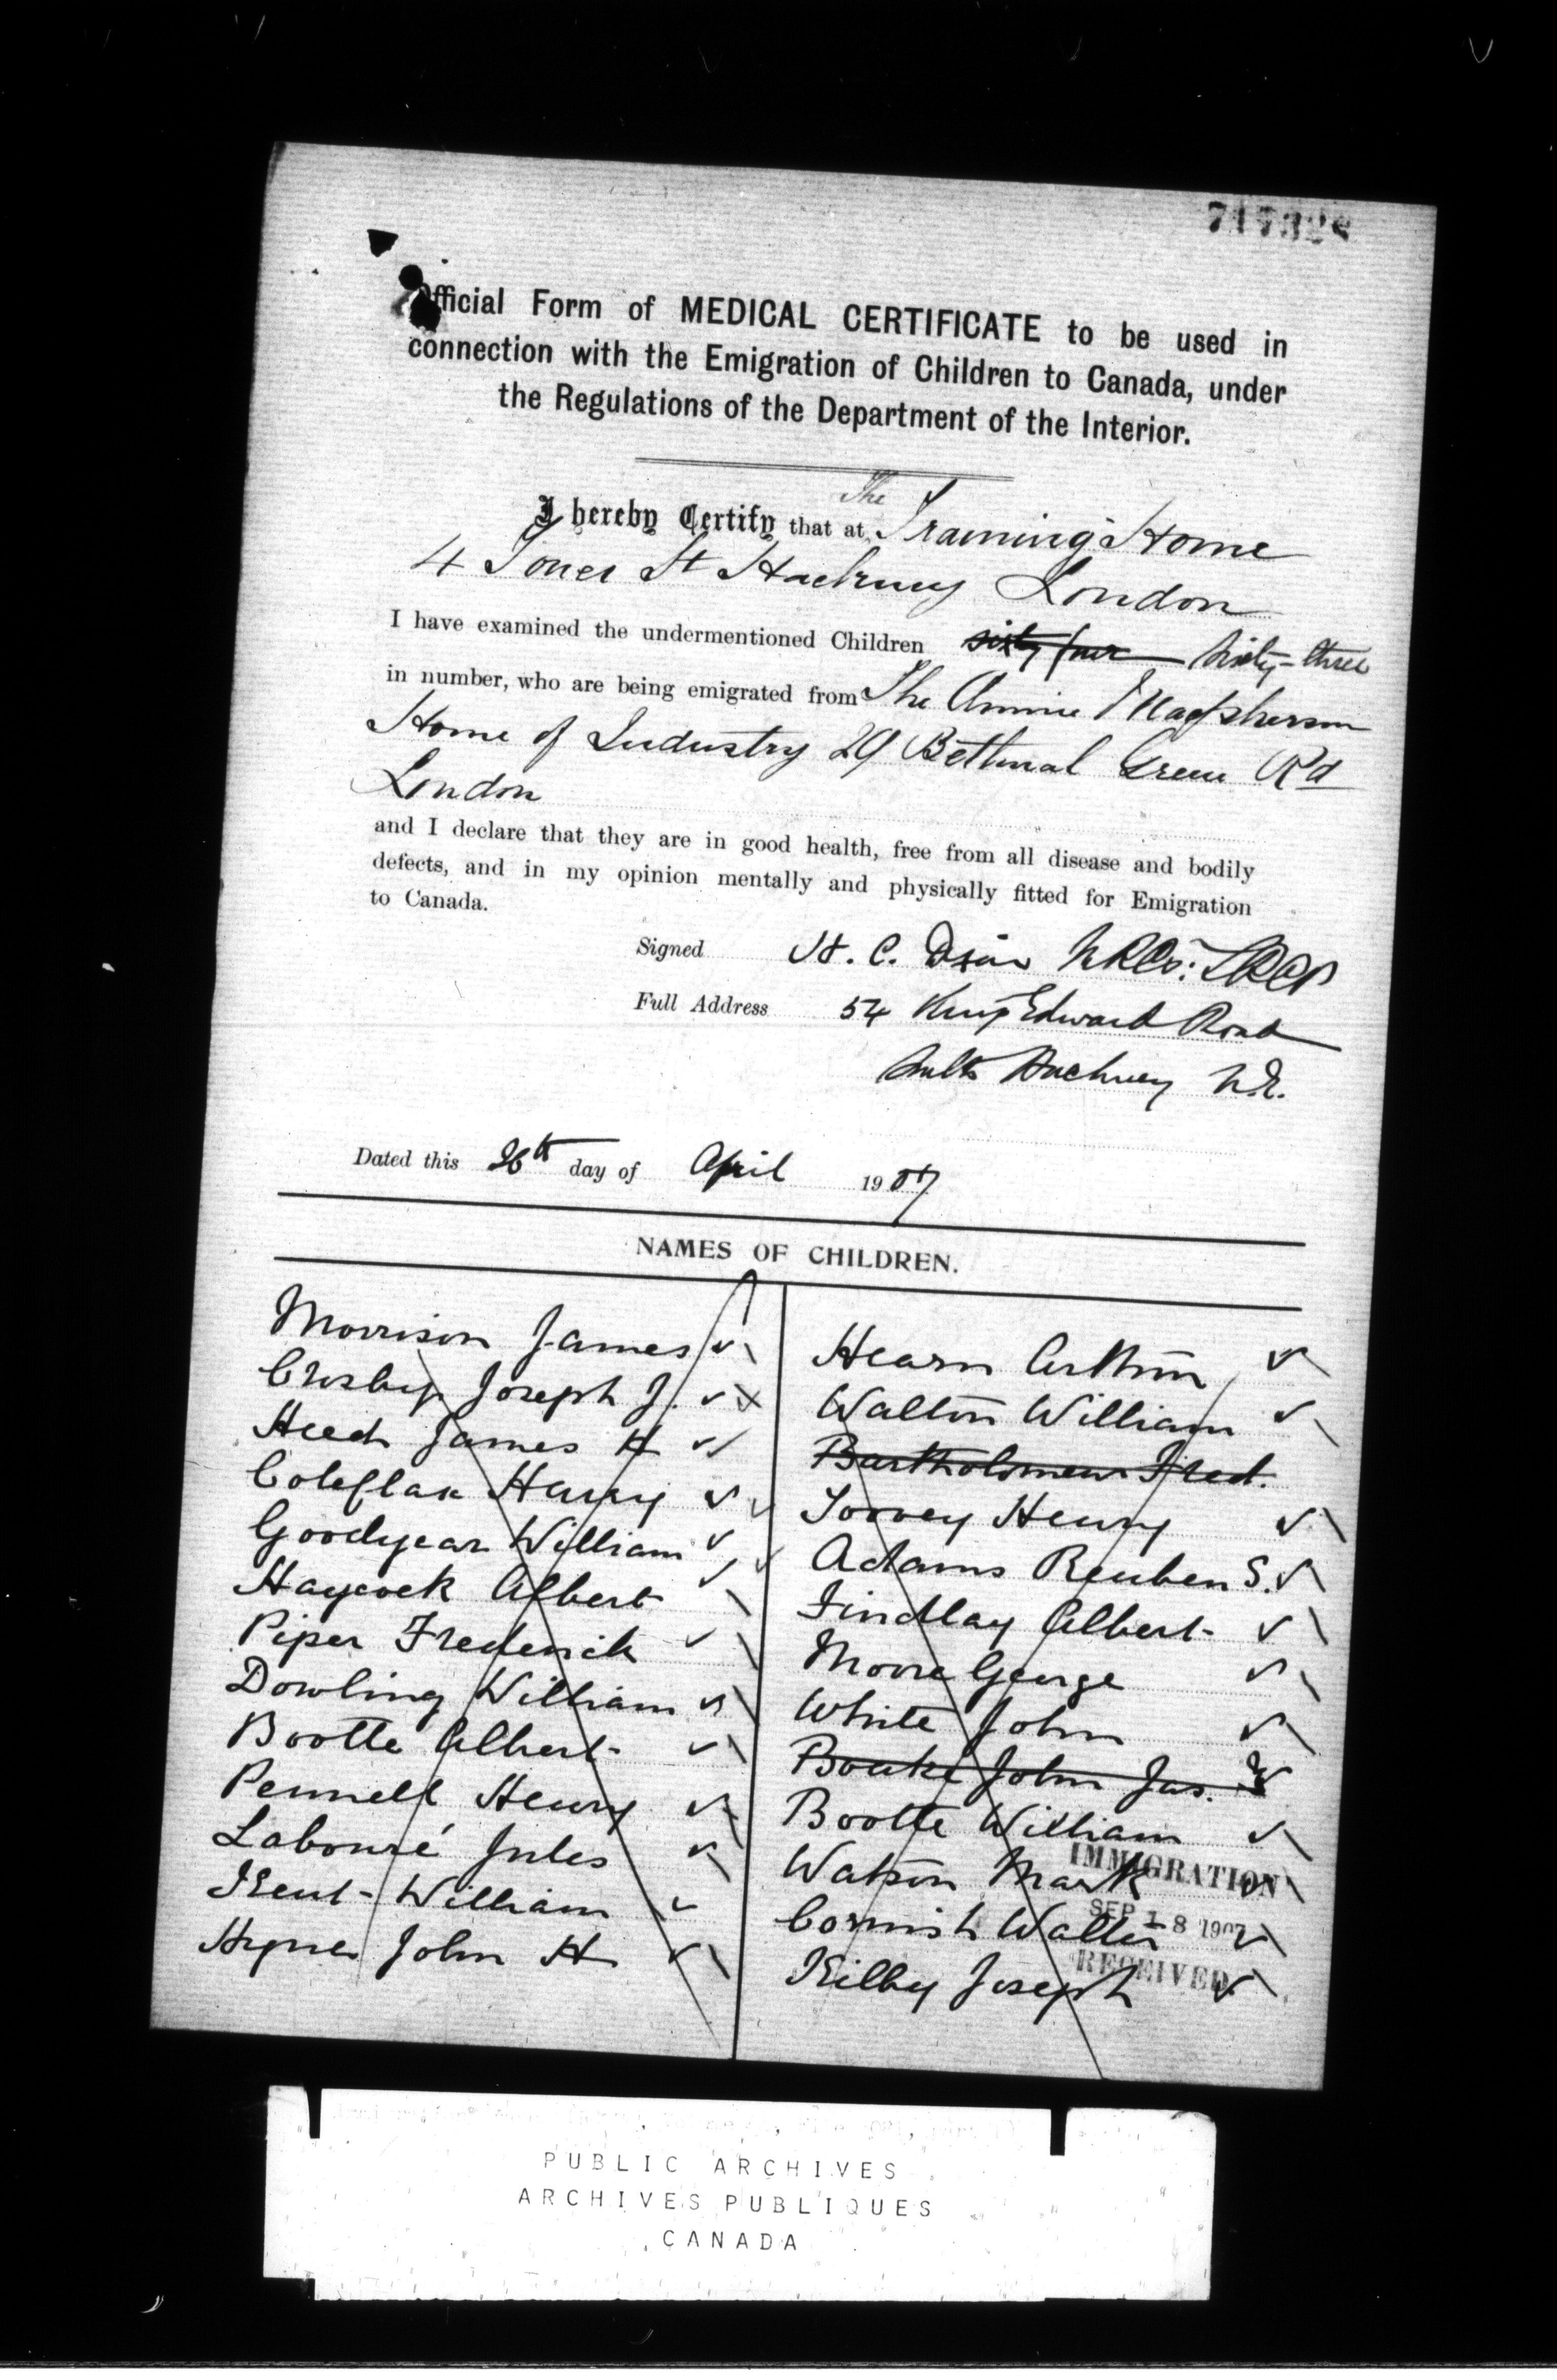 717328
Official Form of MEDICAL CERTIFICATE to be used in
connection with the Emigration of Children to Canada, under
the Regulations of the Department of the Interior.
I hereby Certify that at The Training Home
4 Tower St Hackney London
I have examined the undermentioned Children sixty four sixty-three
in number, who are being emigrated from The Annie Macpherson
Home of Industry 29 Bethnal Green Rd
London
and I declare that they are in good health, free from all disease and bodily
defects, and in my opinion mentally and physically fitted for Emigration
to Canada.
Signed H. C. MRCS: LRCP
Full Address 54 King Edward Road
Hackney N.E.
Dated this 26th day of April 1907
NAMES OF CHILDREN.
Morrison James
Crosby Joseph J.
James H
Harry
Goodyear William
Haycock Albert
Piper Frederick
Dowling William
Bootte Albert
Pennell Henry
Labouré Jules
Kent William
Hynes John H
Hearn Arthur
Walton William
Bartholomew Fred.
Toovey Henry
Adams Reuben S.
Findlay Albert
Moore George
White John
John Jas.
Bootte William
Watson Mark
Cornish Walter
Kilby Joseph
IMMIGRATION
SEP 18 1907
RECEIVED
PUBLIC ARCHIVES
ARCHIVES PUBLIQUES
CANADA